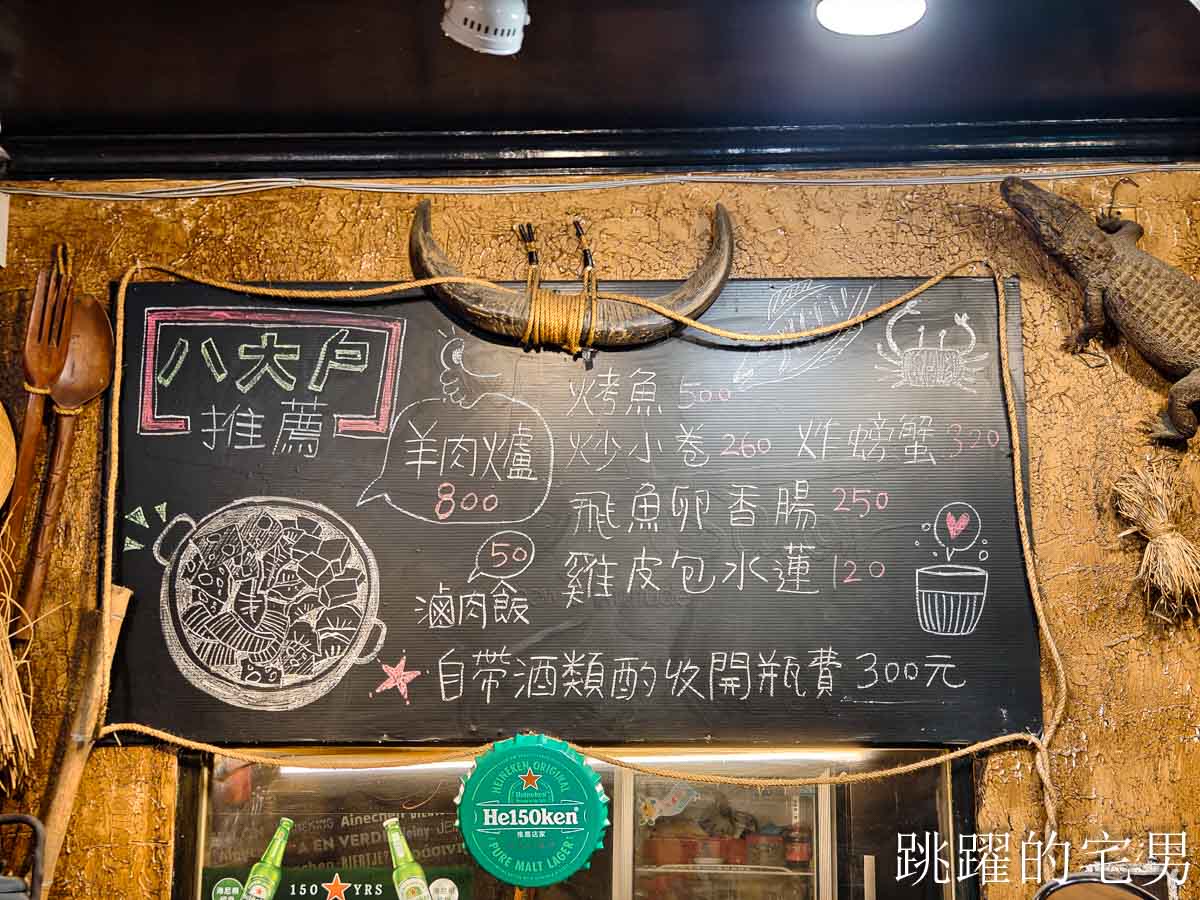 八大戶
推薦
羊肉爐
800
烤魚 500
炒小卷 260 炸螃蟹 320
飛魚卵香腸 250
雞皮包水蓮 120
50
滷肉飯
自帶酒類酌收開瓶費 300元
HEINEKEN ORIGINAL
Heineken
He150ken
推薦店家
PURE MALT LAGER
150 YRS
跳躍的宅男